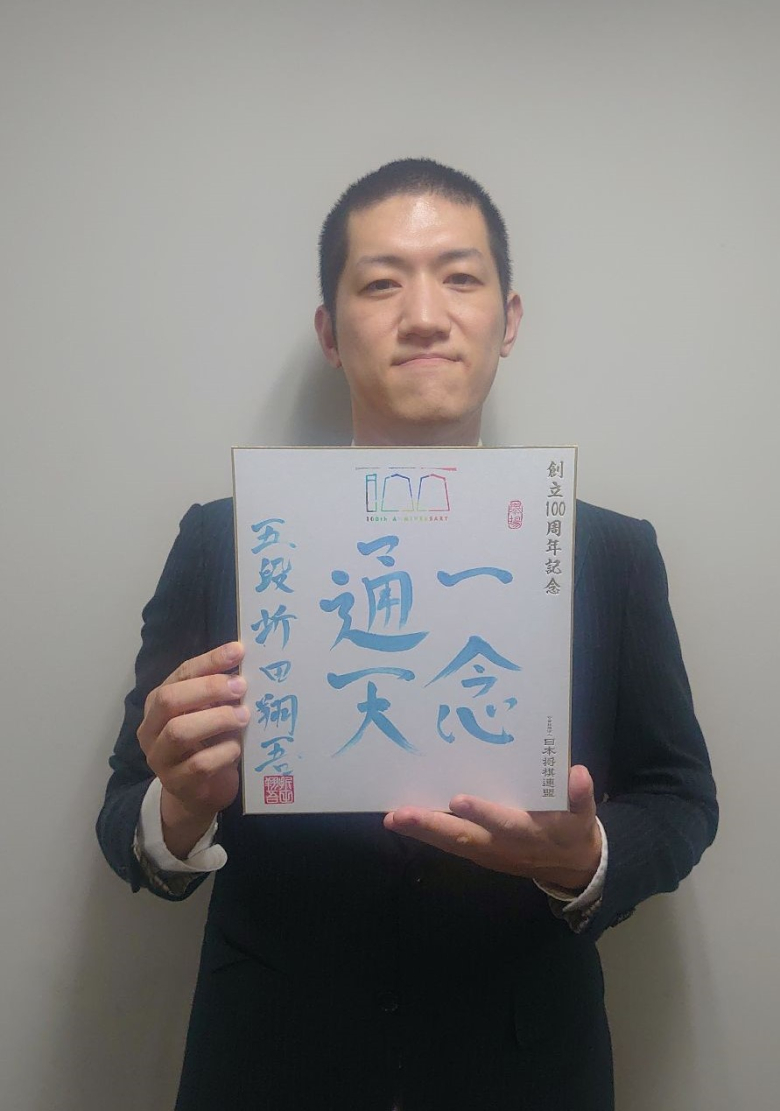 創立100周年記念
公益社団法人 日本将棋連盟
一念
通天
五段 折田翔吾
100th ANNIVERSARY